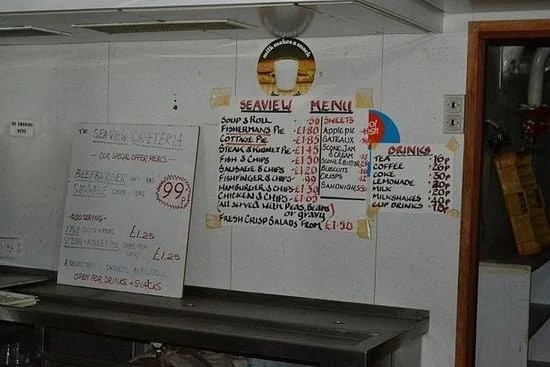 milk makes a snack
NO SMOKING
HERE
THE SEAVIEW CAFETERIA
OUR SPECIAL OFFER MEALS
BEEFBURGER
SAUSAGE
99
ALSO SERVING -
£1.25
STEAK & KIDNEY PIE CHIPS PEAS
£1.25
OPEN FOR DRINKS & SNACKS
SEAVIEW MENU
SOUP & ROLL
FISHERMANS PIE -£1.80
COTTAGE PIE -£1.85
STEAK & KIDNEY PIE -£1.45
FISH & CHIPS -£1.30
SAUSAGE & CHIPS -£1.20
FISHFINGER & CHIPS -.99
HAMBURGER & CHIPS -£1.30
CHICKEN & CHIPS -£1.65
ALL SERVED WITH PEAS, BEANS
or gravy
FRESH CRISP SALADS FROM £1.50
SWEETS
Apple pie
GATEAUX
SCONE, JAM
& CREAM
BISCUITS
CRISPS
SANDWICHES
DRINKS
TEA
COFFEE
COKE
LEMONADE
MILK
MILKSHAKES
CUP DRINKS